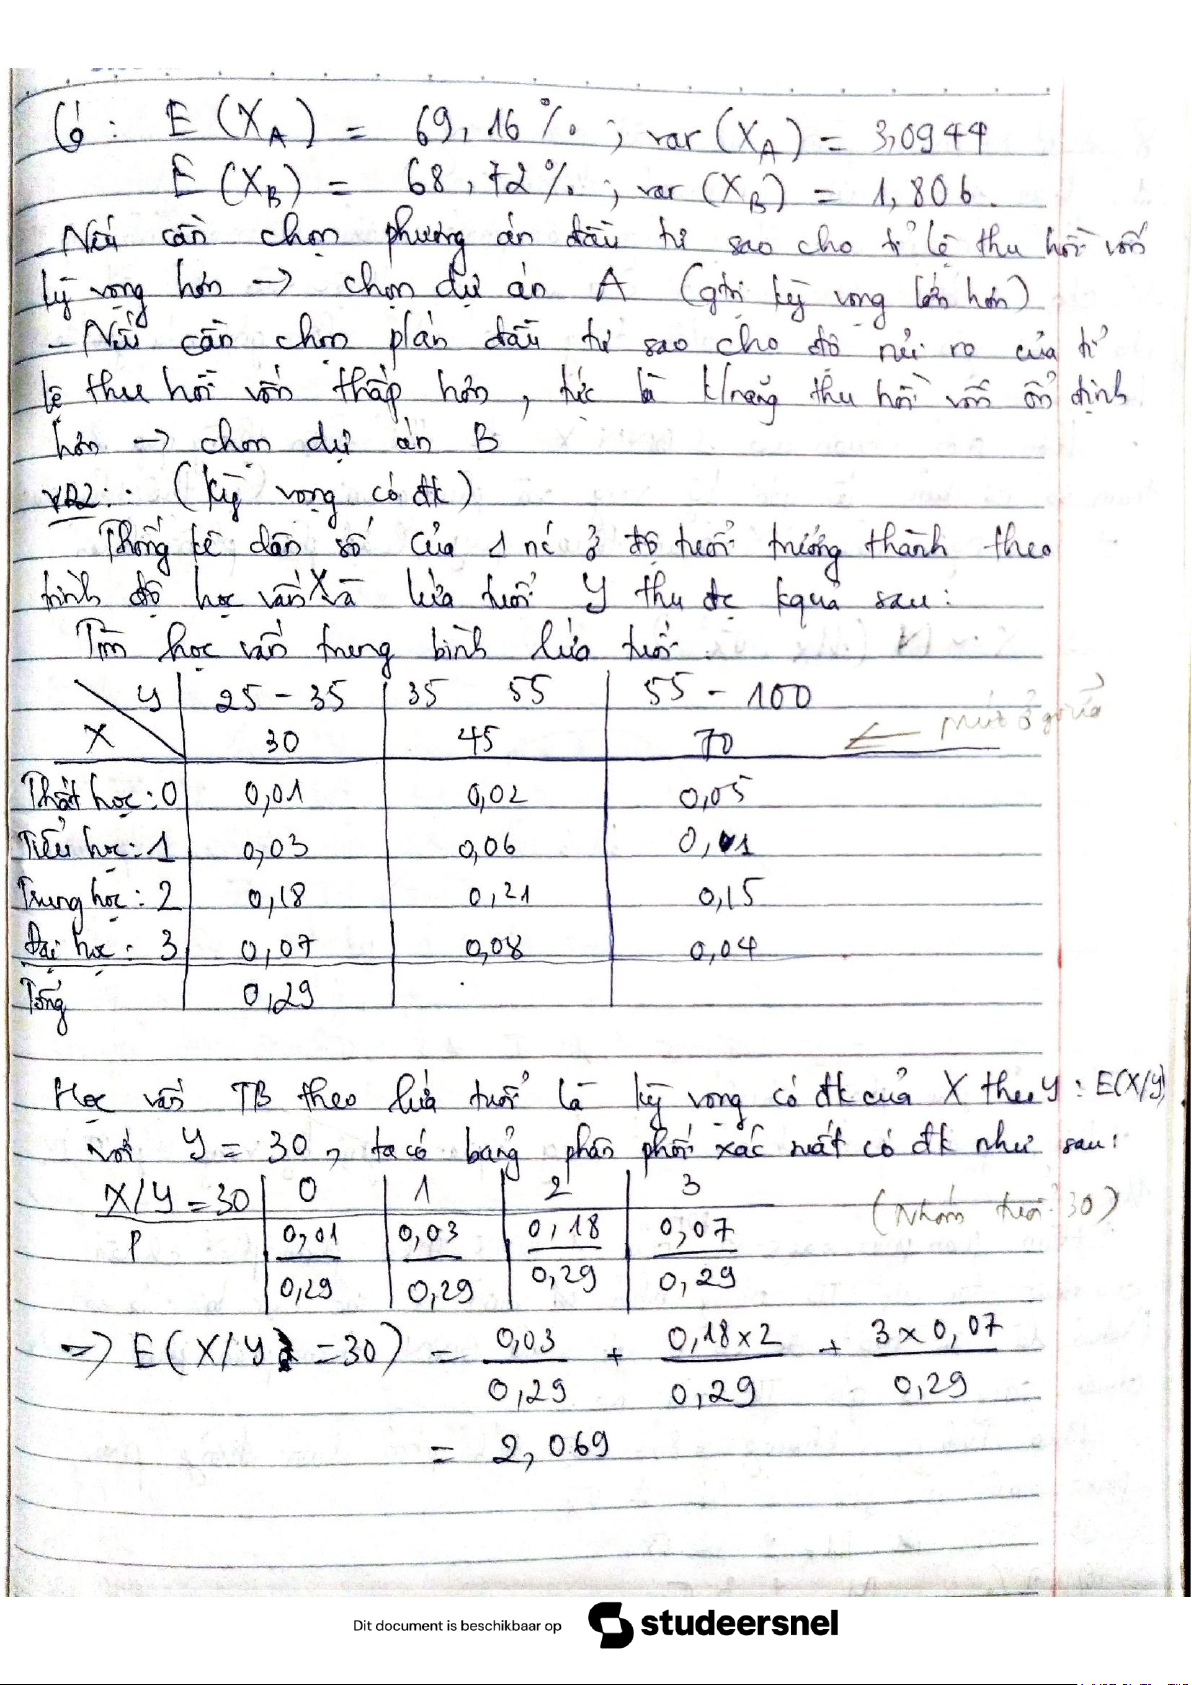 Có : E (X_A) = 69,16 % ; var (X_A) = 3,0944
E (X_B) = 68,72 % ; var (X_B) = 1,806.
- Nếu cần chọn phương án đầu tư sao cho tỉ lệ thu hồi vốn
kỳ vọng hơn → chọn dự án A (gtrị kỳ vọng lớn hơn)
- Nếu cần chọn p/án đầu tư sao cho độ rủi ro của tỉ
lệ thu hồi vốn thấp hơn, tức là k/năng thu hồi vốn ổn định
hơn → chọn dự án B
VD2: (Kỳ vọng có đk)
Thống kê dân số của 1 nc ở độ tuổi trưởng thành theo
trình độ học vấn X và lứa tuổi Y thu đc kquả sau:
Tìm học vấn trung bình lứa tuổi.
Y 25 - 35 35 55 55 - 100
X 30 45 70 ← ở giữa
Thất học: 0 0,01 0,02 0,05
Tiểu học: 1 0,03 0,06 0,01
Trung học: 2 0,18 0,21 0,15
Đại học: 3 0,07 0,08 0,04
Tổng 0,29
Học vấn TB theo lứa tuổi là kỳ vọng có đk của X theo Y : E(X/Y)
Với Y = 30, ta có bảng phân phối xác suất có đk như sau:
X/Y = 30 0 1 2 3
(Nhóm tuổi 30)
P 0,01/0,29 0,03/0,29 0,18/0,29 0,07/0,29
=> E(X/Y = 30) = 0,03/0,29 + 0,18x2/0,29 + 3x0,07/0,29
= 2,069
Dit document is beschikbaar op studeersnel